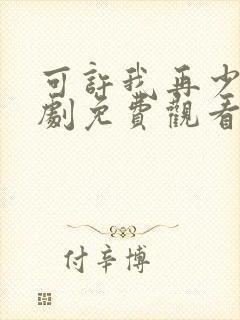 可許我再少
劇免費觀看
付辛博